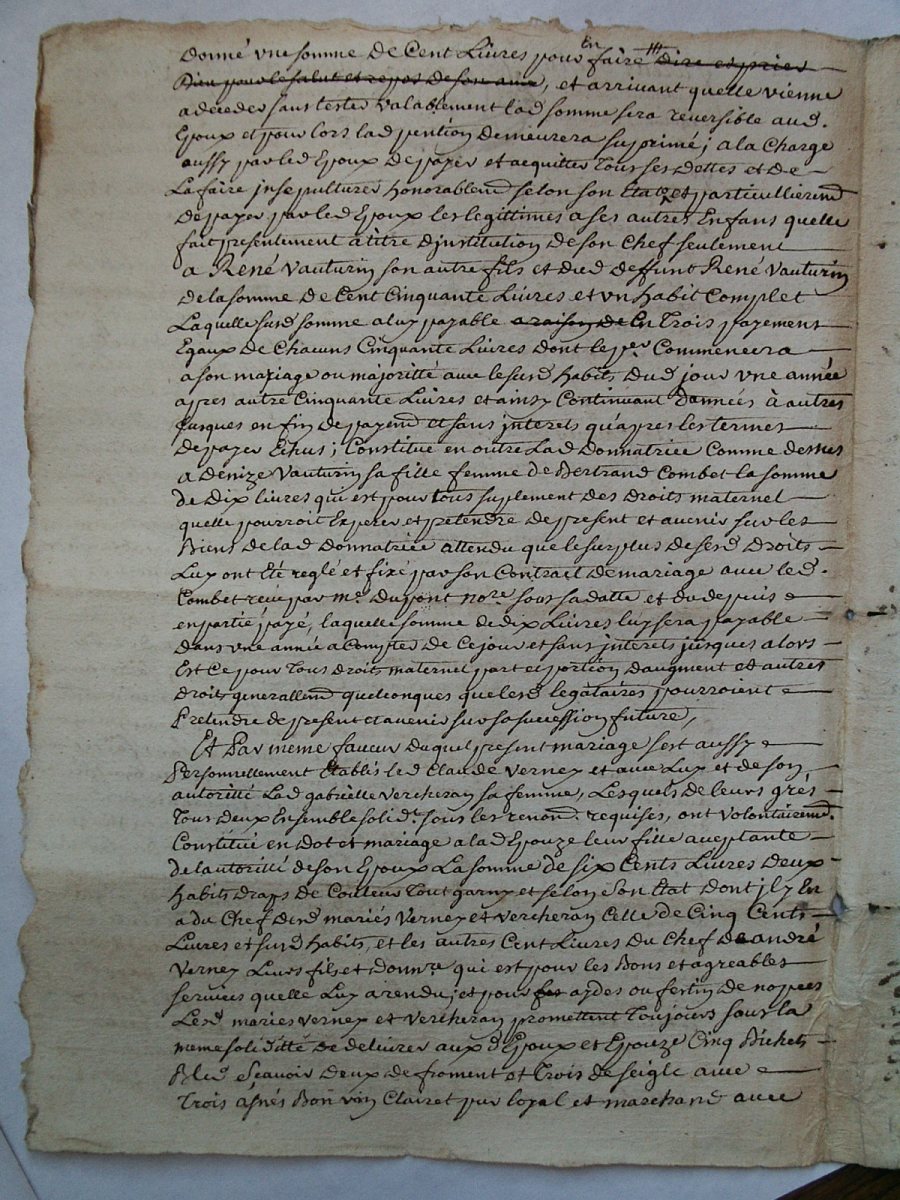 donné vne somme de Cent Livres pour en faire dire et prier
Dieu pour le salut et repos de son ame, et arrivant quelle vienne
a deceder sans tester valablement lad somme sera reversible aud.
Epoux et pour lors lad pention demeurera suprimé; a la Charge
aussy par led Epoux de payer et acquitter tous ses dettes et de
La faire jnsepulturer honorablemd selon son État, et particullieremd
de payer par led Epoux les legittimes a ses autres Enfans quelle
fait presentement à titre djnstitution de son Chef seulement
a René Vauturin son autre fils et dud deffunt René Vauturin
de la somme de Cent Cinquante Livres et vn habit Complet
Laquelle susd somme a luy payable a raison de En Trois payement
Egaux de Chacuns Cinquante Livres dont le per Commencera
a son mariage ou majoritté avec le susd habits dud jour vne année
apres autre Cinquante Livres et ainsy Continuant dannées à autres
jusques en fin de payemd et sans interets qu'apres les termes
de payer Echus; Constitue en outre Lad Donnatrice Comme dessus
a Denize Vauturin sa fille femme de Bertrand Combet la somme
de Dix livres qui est pour tous suplement des droits maternel
quelle pourroit Esperer et pretendre de present et avenir sur les
Biens de lad Donnatrice attendu que le surplus de sesd Droits
Luy ont Eté reglé et fixé par son Contract de mariage avec led.
Combet reçu par me. Dupont nore. sous sa datte et du depuis
en partie payé, laquelle somme de dix Livres luy sera payable
dans vne année a Compter de Ce jour et sans interets jusques alors
Est Ce pour tous droits maternel part et portion daugment et autres
droits generallemd quelconques que lesd legataires pourroient
Pretendre de present et avenir sur sa succession future,
Et Par meme faveur duquel present mariage sest aussy
Personnellement Etablis led Claude Verney et avec Luy et de son
autoritté Lad gabrielle Vercheran sa femme, Lesquels de leurs grés
Tous deux Ensemble solid. sous les renond. requises, ont Volontairemd.
Constitué en Dot et mariage a lad Epouze leur fille aceptante
de l'autoritté de son Epoux La somme de six Cents Livres Deux
habits draps de Couleur tout garny et selon son Etat dont jl y En
a du Chef desd mariés Verney et Vercheran Celle de Cinq Cents
Livres et susd habits, et les autres Cent Livres du Chef de andré
Verney Leurs fils et donnre qui est pour les Bons et agreables
services quelle Luy a rendu; et pour les aydes ou festin de nopces
Lesd mariés Verney et Vercheran promettent toujours sous la
meme soliditté de delivrer aux d Epoux et Epouze Cinq Bichets
Bled Sçavoir Deux de froment et Trois de seigle avec
Trois asnés Bon vin Clairet pur loyal et marchand avec